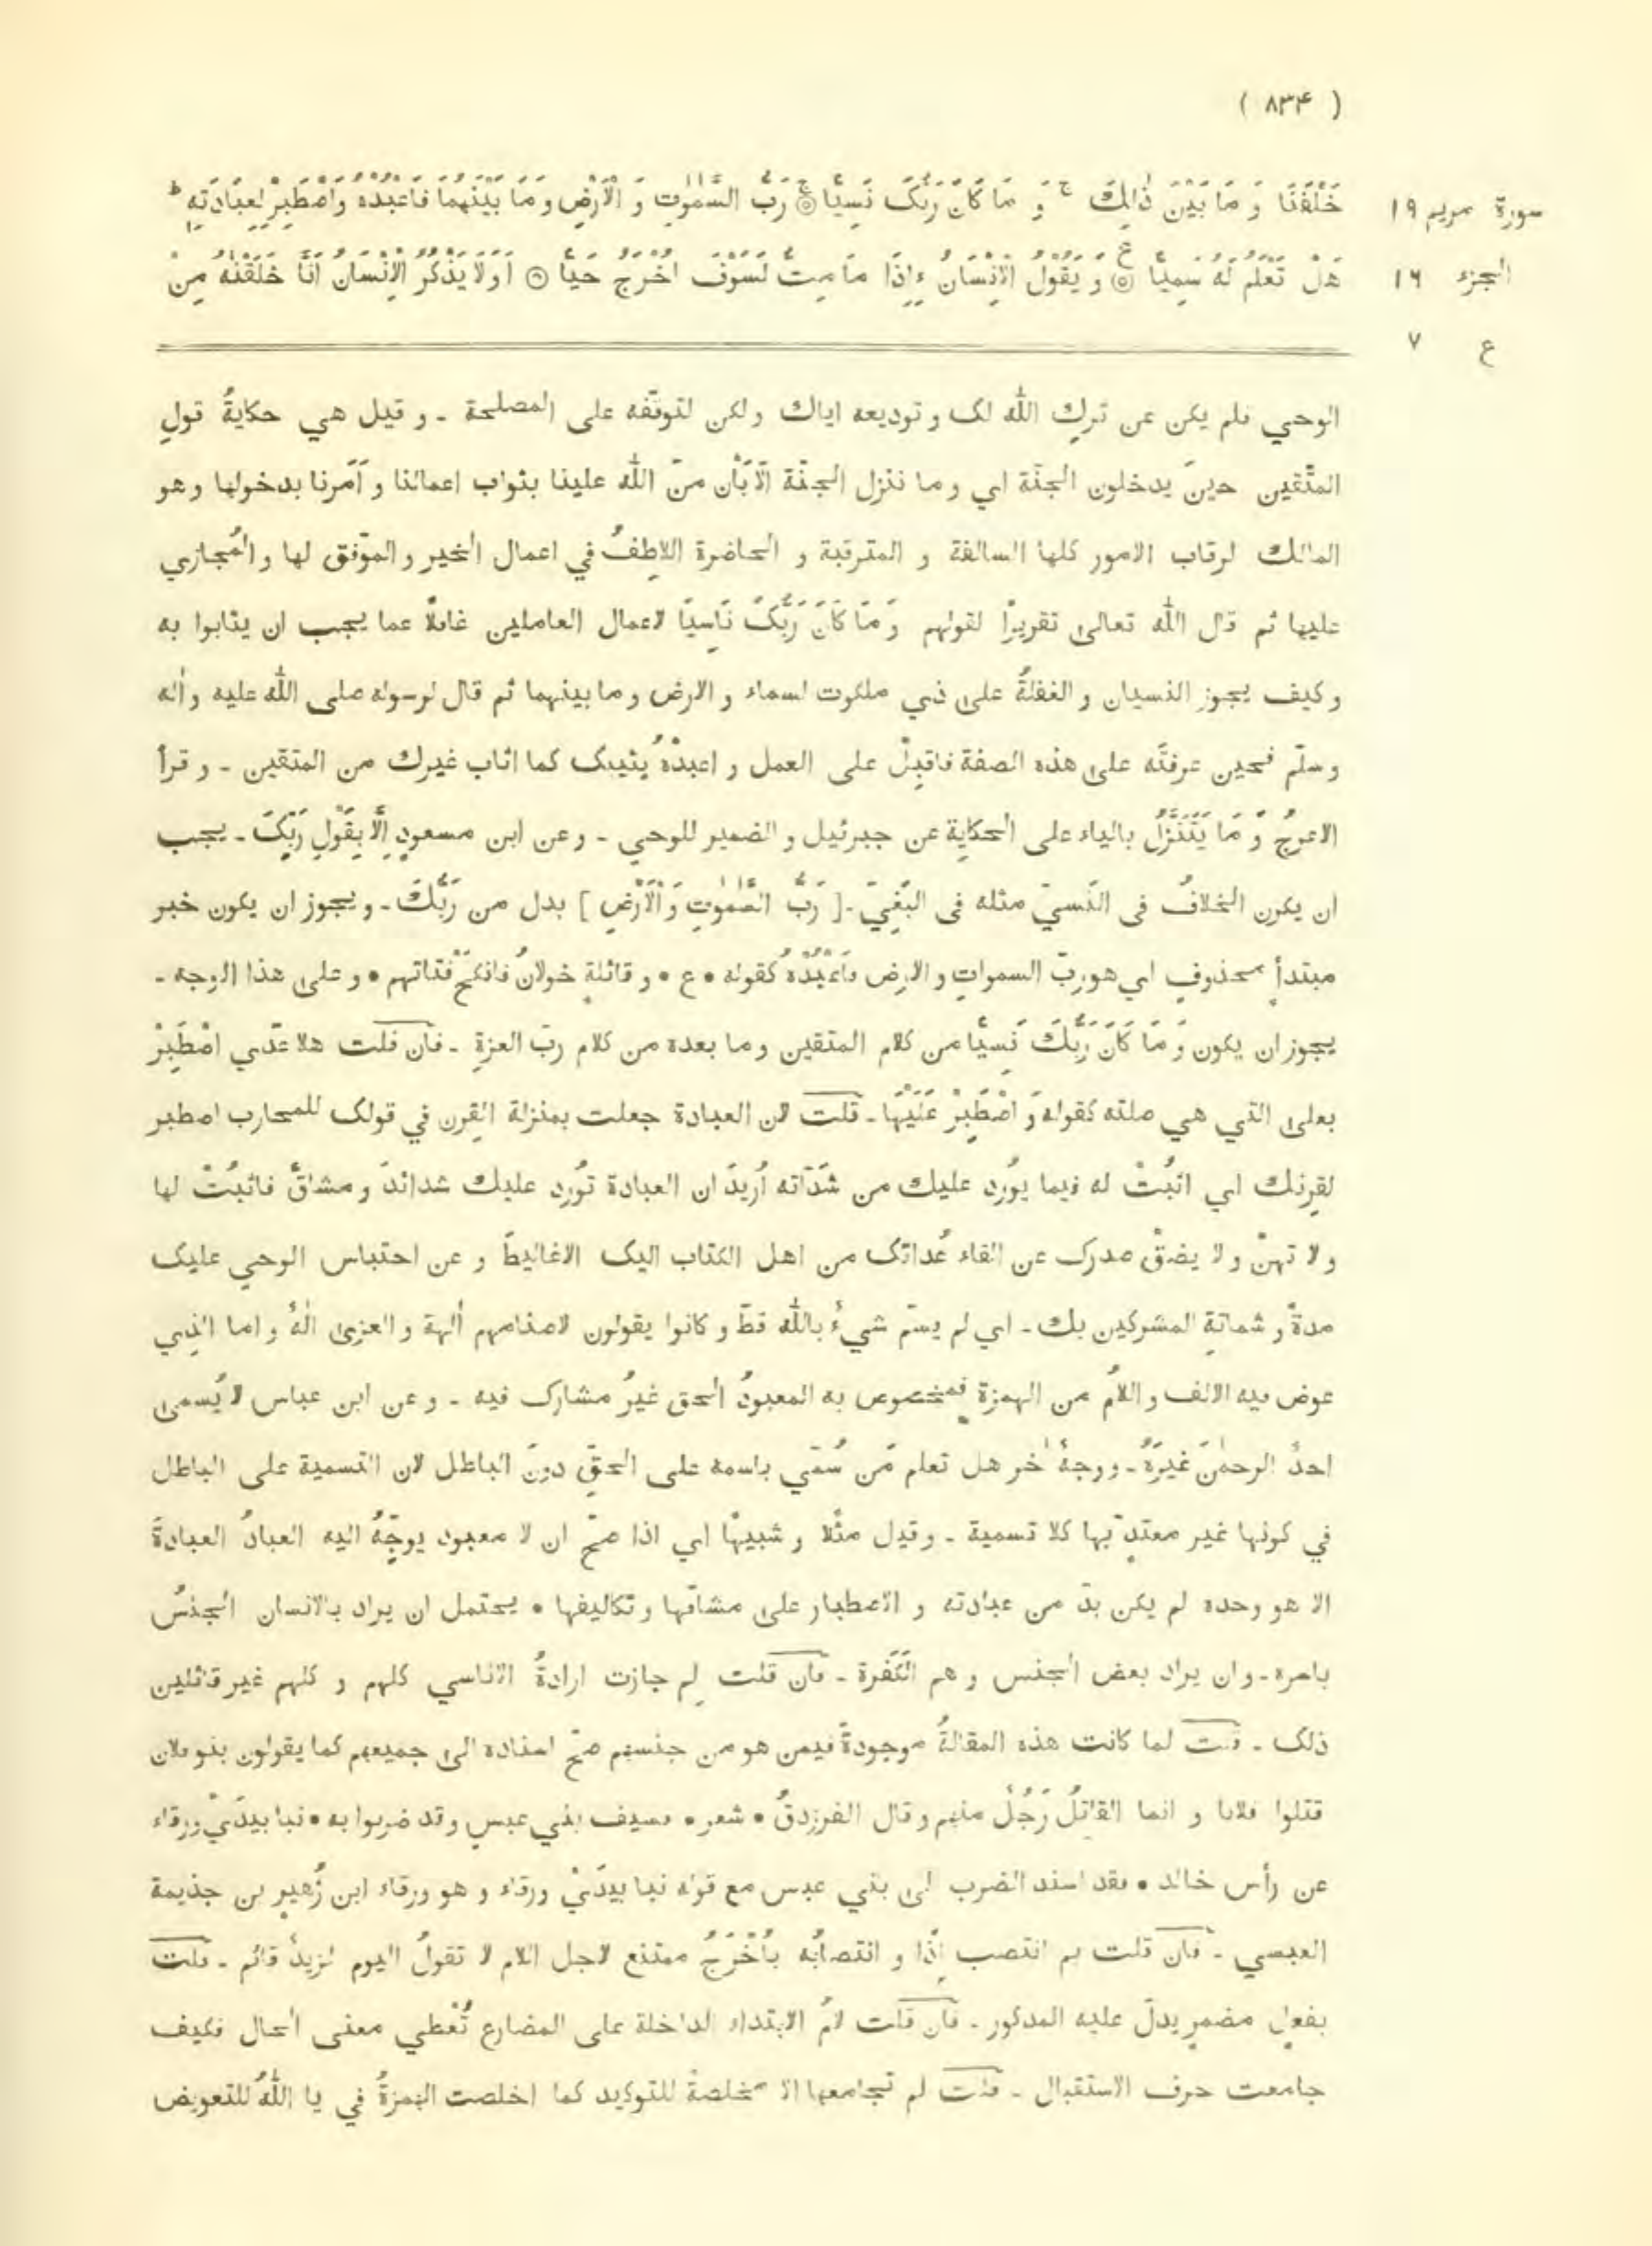 ( ٨٣۴ )
سورة مريم ١٩
الجزء ١٦
ع ٧
خَلْفَنَا وَ مَا بَيْنَ ذٰلِكَ ج وَ مَا كَانَ رَبُّكَ نَسِيًّا ۝ ج رَبُّ السَّمٰوٰتِ وَ الْاَرْضِ وَ مَا بَيْنَهُمَا فَاعْبُدْهُ وَاصْطَبِرْ لِعِبَادَتِهٖ ط
هَلْ تَعْلَمُ لَهُ سَمِيًّا ۝ ع وَ يَقُوْلُ الْاِنْسَانُ ءَاِذَا مَا مِتُّ لَسَوْفَ اُخْرَجُ حَيًّا ۝ اَوَلَا يَذْكُرُ الْاِنْسَانُ اَنَّا خَلَقْنٰهُ مِنْ
الوحي فلم يكن عن تركِ اللّٰه لك و توديعه اياك ولكن لتوقّفه على المصلحة ـ و قيل هي حكايةُ قولِ
المتّقين حينَ يدخلون الجنّة اي و ما ننزل الجنّة الّا بَأن منّ اللّٰه علينا بثواب اعمالنا و اَمَرنا بدخولها و هو
المالك لرقاب الامور كلها السالفة و المترقبة و الحاضرة اللاطِفُ في اعمال الخير و الموّفق لها و المُجازي
عليها ثم قال اللّٰه تعالى تقريرًا لقولهم وَ مَا كَانَ رَبُّكَ نَاسِيًا لاعمال العاملين غافلًا عما يجب ان يثابوا به
و كيف يجوز النسيان و الغفلةُ على ذي ملكوت لسماء و الارض و ما بينهما ثم قال لرسوله صلى اللّٰه عليه و اٰله
و سلّم فحين عرفتَه على هذه الصفة فاقبِلْ على العمل و اعبدْهُ يثيبك كما اثاب غيرك من المتقين ـ و قرأ
الاعرجُ وَ مَا يَتَنَزَّلُ بالياء على الحكاية عن جبرئيل و الضمير للوحي ـ و عن ابن مسعودٍ اِلَّا بِقَوْلِ رَبِّكَ ـ يجب
ان يكون الخلافُ فى النَسيّ مثله فى البَغِيّ ـ [ رَبُّ السَّمٰوٰتِ وَ الْاَرْضِ ] بدل من رَبُّكَ ـ و يجوز ان يكون خبر
مبتدأٍ محذوفٍ اي هو ربّ السموات و الارض فَاعْبُدْهُ كقوله • ع • و قائلةٍ خولانُ فانكِحْ فَتاتهم • و على هذا الوجه ـ
يجوز ان يكون وَ مَا كَانَ رَبُّكَ نَسِيًّا من كلام المتقين و ما بعده من كلام ربّ العزةِ ـ فان قلت هلا عدّي اصْطَبِرْ
بعلى التي هي صلته كقوله وَ اصْطَبِرْ عَلَيْهَا ـ قلت لان العبادة جعلت بمنزلة القِرن في قولك للمحارب اصطبر
لقِرنك اي اثبُتْ له فيما يُورِد عليك من شدّاته اُريدَ ان العبادة تُورِد عليك شدائدَ و مشاقَّ فاثبُتْ لها
و لا تهِنْ و لا يضِقْ صدرك عن القاء عُداتك من اهل الكتاب اليك الاغاليطَ و عن احتباس الوحي عليك
مدةً و شماتةِ المشركين بك ـ اي لم يسمّ شيءٌ باللّٰه قطّ و كانوا يقولون لاصنامهم اٰلهة و العزى الٰهٌ و اما الذي
عوض فيه الالف و اللامُ من الهمزة فمخصوص به المعبودُ الحق غيرُ مشارك فيه ـ و عن ابن عباس لا يُسمى
احدٌ الرحمٰنَ غيرَهُ ـ و وجهٌ اٰخر هل تعلم مَن سُمّي باسمه على الحقِّ دونَ الباطل لان التسمية على الباطل
في كونها غير معتدٍّ بها كلا تسمية ـ و قيل مثلًا و شبيهًا اي اذا صحّ ان لا معبود يوجِّهُ اليه العبادُ العبادةَ
الا هو وحده لم يكن بدّ من عبادته و الاصطبار على مشاقّها و تكاليفها • يحتمل ان يراد بالانسان الجنسُ
باسره ـ و ان يراد بعض الجنس و هم الكَفَرة ـ فان قلت لِم جازت ارادةُ الاناسي كلهم و كلهم غير قائلين
ذلك ـ قلت لما كانت هذه المقالةُ موجودةً فيمن هو من جنسهم صحّ اسناده الى جميعهم كما يقولون بنو فلان
قتلوا فلانا و انما القاتلُ رَجُلٌ منهم و قال الفرزدقُ • شعر • فسيف بني عبسٍ و قد ضربوا به • نبا بيدَيْ ورقاء
عن رأس خالد • فقد اسند الضرب الى بني عبس مع قوله نبا بيدَيْ ورقاء و هو ورقاء ابن زُهيرِ بن جذيمة
العبسي ـ فان قلت بم انتصب اِذًا و انتصابُه بأُخْرَجُ ممتنع لاجل اللام لا تقولُ اليوم لزيدٌ قائم ـ قلت
بفعلٍ مضمرٍ يدلّ عليه المذكور ـ فان قلت لامُ الابتداء الداخلة على المضارع تُعْطي معنى الحال فكيف
جامعت حرف الاستقبال ـ قلت لم تجامعها الا مخلصةً للتوكيد كما اخلصت الهمزةُ في يا اللّٰهُ للتعويض